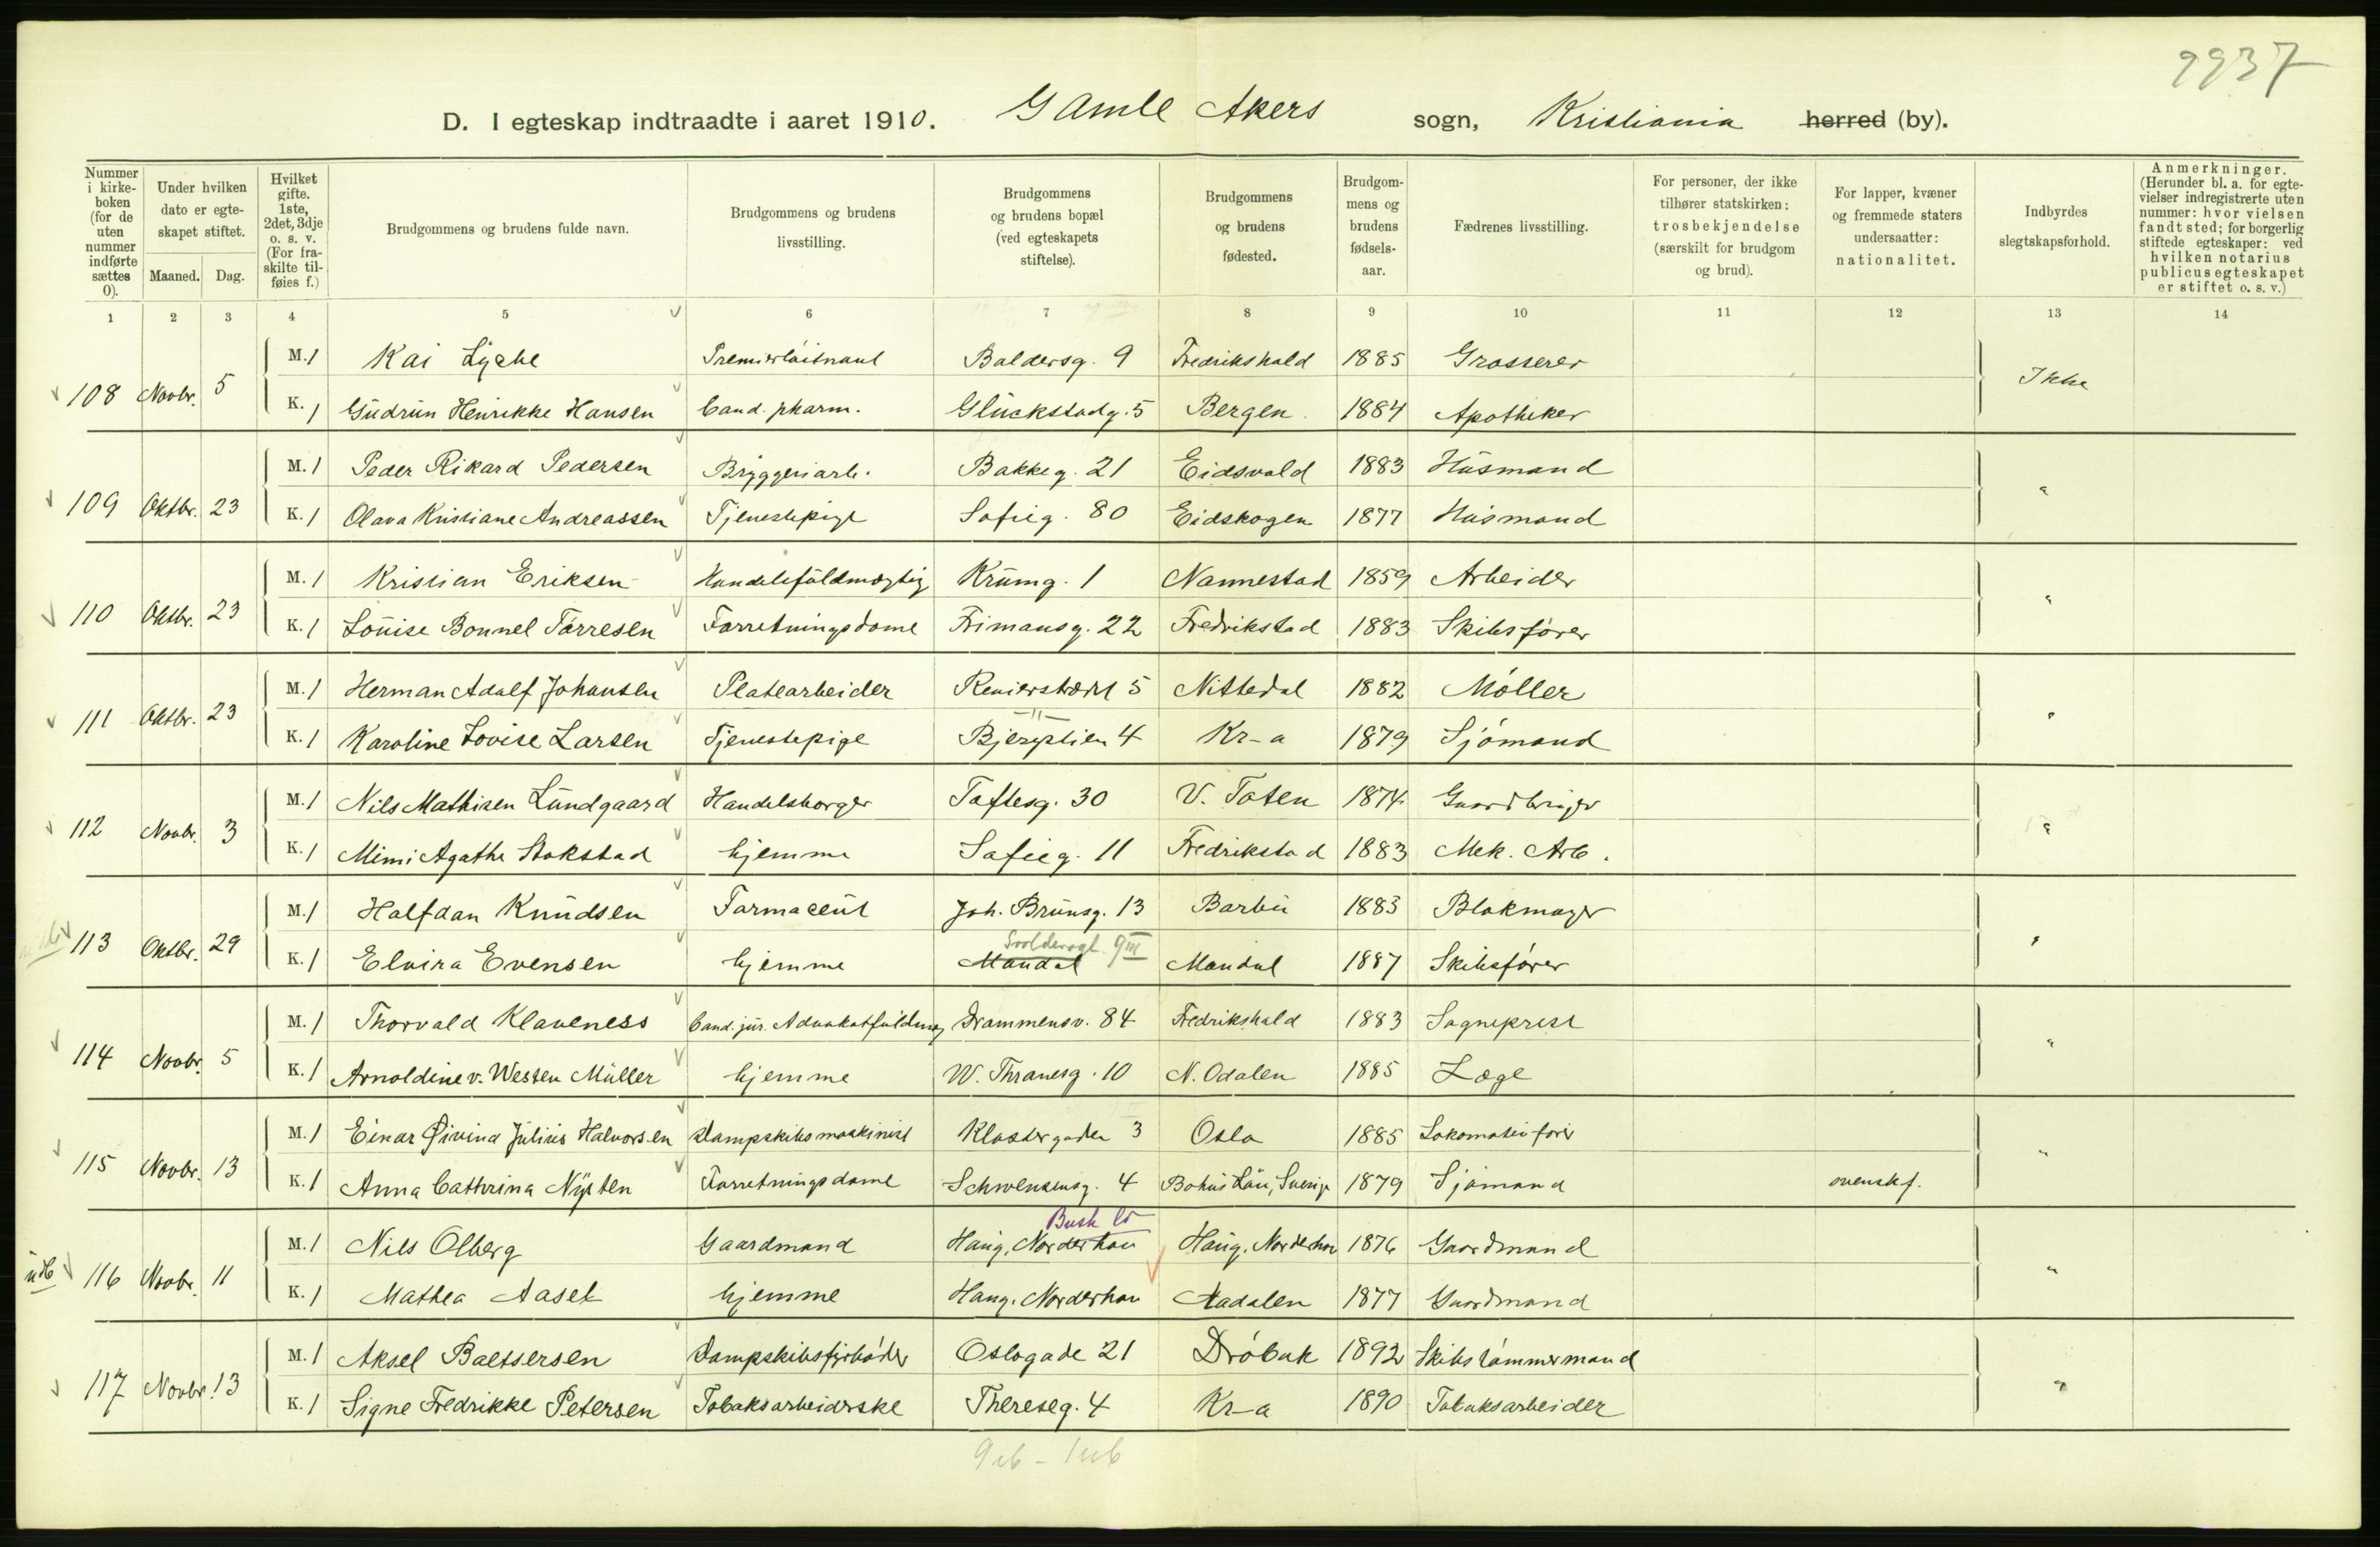 9937
D. I egteskap indtraadte i aaret 1910. Gamle Akers sogn, Kristiania herred (by).
Nummer i kirkeboken (for de uten nummer indførte sættes 0). | Under hvilken dato er egteskapet stiftet. Maaned. Dag. | Hvilket gifte. 1ste, 2det, 3dje o. s. v. (For fraskilte tilføies f.) | Brudgommens og brudens fulde navn. | Brudgommens og brudens livsstilling. | Brudgommens og brudens bopæl (ved egteskapets stiftelse). | Brudgommens og brudens fødested. | Brudgommens og brudens fødselsaar. | Fædrenes livsstilling. | For personer, der ikke tilhører statskirken: trosbekjendelse (særskilt for brudgom og brud). | For lapper, kvæner og fremmede staters undersaatter: nationalitet. | Indbyrdes slegtskapsforhold. | Anmerkninger. (Herunder bl. a. for egtevielser indregistrerte uten nummer: hvor vielsen fandt sted; for borgerlig stiftede egteskaper: ved hvilken notarius publicus egteskapet er stiftet o. s. v.)
1 2 3 4 5 6 7 8 9 10 11 12 13 14
M. 1 Kai Lyche Premierløitnant Baldersg. 9 Fredrikshald 1885 Grosserer
108 Novbr. 5 Ikke
K. 1 Gudrun Henrikke Hansen Cand. pharm. Glückstadg. 5 Bergen 1884 Apotheker
M. 1 Peder Rikard Pedersen Bryggeriarb. Bakkeg. 21 Eidsvold 1883 Husmand
109 Oktbr. 23 "
K. 1 Olava Kristiane Andreassen Tjenestepige Sofieg. 80 Eidskogen 1877 Husmand
M. 1 Kristian Eriksen Handelsfuldmægtig Krumg. 1 Nannestad 1859 Arbeider
110 Oktbr. 23 "
K. 1 Louise Bonnel Tørresen Forretningsdame Frimansg. 22 Fredrikstad 1883 Skibsfører
M. 1 Herman Adolf Johansen Platearbeider Renierstrædet 5 Nittedal 1882 Møller
111 Oktbr. 23 "
K. 1 Karoline Lovise Larsen Tjenestepige 4 Kr-a 1879 Sjømand
M. 1 Nils Mathisen Lundgaard Handelsborger Toftesg. 30 V. Toten 1874 Gaardbruger
112 Novbr. 3 "
K. 1 Mimi Agathe Stokstad hjemme Sofieg. 11 Fredrikstad 1883 Mek. Arb.
M. 1 Halfdan Knudsen Farmaceut Joh. Brunsg. 13 Barbu 1883 Blokmager
113 Oktbr. 29 "
Svoldergt. 9 III
K. 1 Elvira Evensen hjemme Mandal Mandal 1887 Skibsfører
M. 1 Thorvald Klaveness Cand. jur. Advokatfuldmæg Drammensv. 84 Fredrikshald 1883 Sogneprest
114 Novbr. 5 "
K. 1 Arnoldine v. Westen Müller hjemme W. Thranesg. 10 N. Odalen 1885 Læge
M. 1 Einar Øivind Julius Halvorsen Dampskibsmaskinist Klostergaden 3 Oslo 1885 Lokomotivfører
115 Novbr. 13 "
K. 1 Anna Cathrina Nysten Forretningsdame Schwensensg. 4 Bohus Län, Sverige 1879 Sjømand svensk f.
M. 1 Nils Olberg Gaardmand Haug, Norderhov Haug, Norderhov 1876 Gaardmand
116 Novbr. 11 "
K. 1 Mathea Aaset hjemme Haug. Norderhov Aadalen 1877 Gaardmand
M. 1 Aksel Baltsersen Dampskibsfyrbøder Oslogade 21 Drøbak 1892 Skibstømmermand
117 Novbr. 13 "
K. 1 Signe Fredrikke Petersen Tobaksarbeiderske Thereseg. 4 Kr-a 1890 Tobaksarbeider